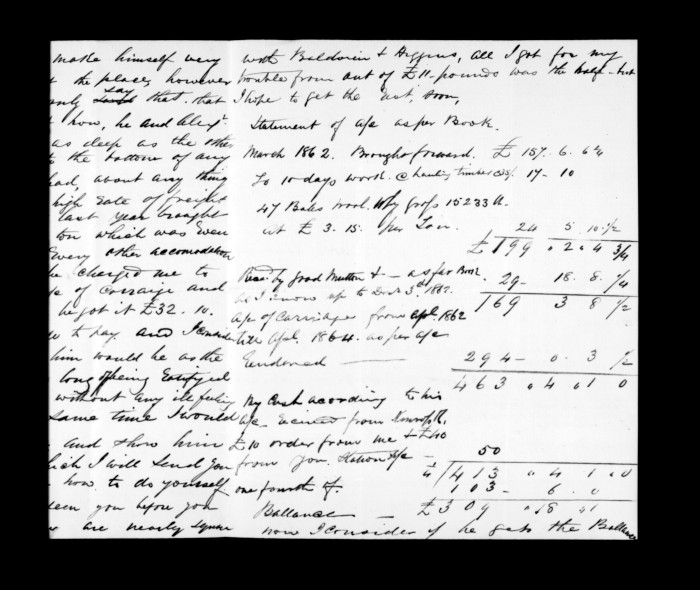 make himself very
the place, however
only say that. that
how, he and Alexr
as deep as the other
to the bottom of any
had, about any thing
high rate of freight
last year brought
ton which was even
every other accomodation
he charged me to
of carraige and
he got it £32. 10.
to pay. and I consider
him would be as the
long of being
without any ill feeling
same time I would
and show him
which I will send you
how to do yourself
seen you before you
are nearly square
with Baldwin & Higgins, all I got for my
trouble from out of £11 pounds was the half - but
I hope to get the rest, soon,
Statement of a/c as per Book.
March 1862. Brought forward. £ 157. 6. 6
To 10 days work @ hauling timber 17 - 10
47 Bales Wool. gross 15233 lb.
at £ 3. 15. per Ton. 24 5. 10 1/2
£ 199 " 2 " 4 3/4
Recd. by Good Mutton & - as per Book
as I know up to 3rd. 1862. 29 - 18. 8. 1/4
169 3 8 1/2
a/c of Carridges from Apl. 1862
till Apl. 1864. as per a/c
Endorsed 294 - 0. 3 1/2
463 " 4 " 1 0
My Cash according to his
a/c
£10 order from me & £40
from you. Station a/c - 50
4/ 413 " 4 1 " 0
one fourth of. 103 - 6. 0
Ballance - £309 " 18 " 1
now I consider if he gets the Ballance